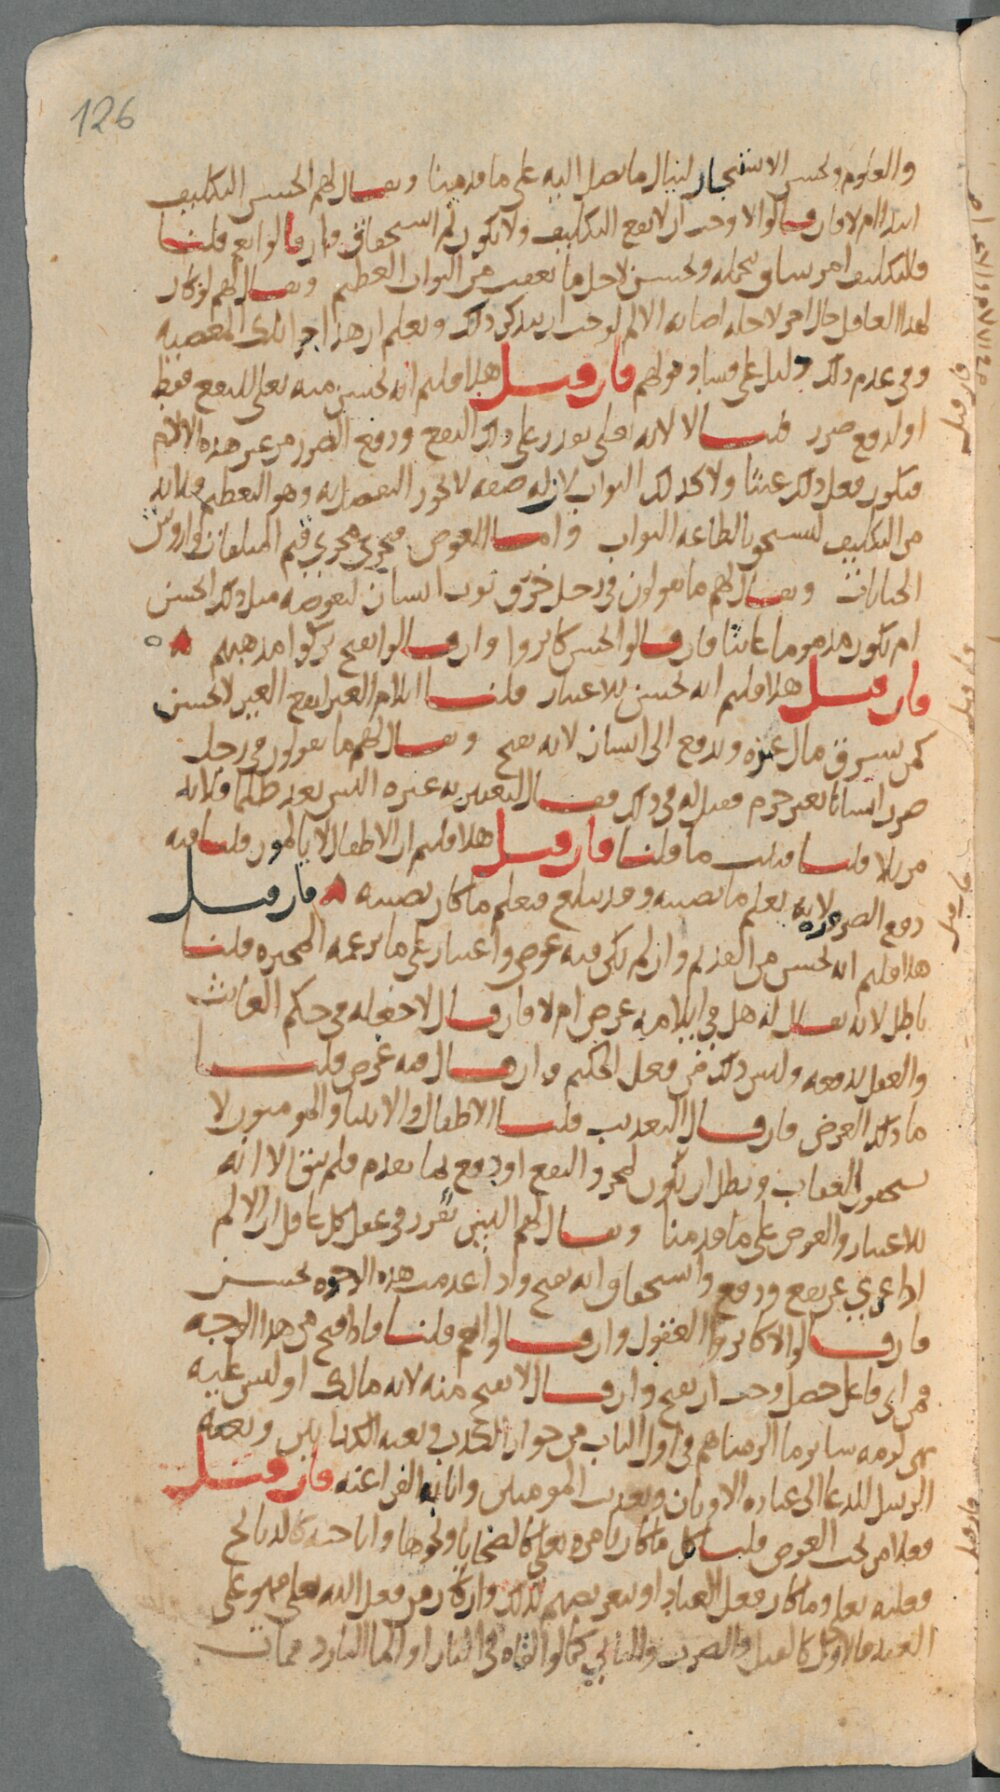 126
والعلوم ولحسن الاستيجار لينال ما يصل اليه على ما قدمنا ويقال لهم الحسن التكليف
ابتدا ام لا فان قالوا لا وجب ان لا يقع التكليف ولا يكون لهم استحقاق وان قالوا نعم قلنا
فالتكليف امر شاق تحمله ولحسن لاجل ما يعقب من الثواب العظيم ويقال لهم لو كان
لهذا العاقل حال اخر لاجله اصابه الالم لوجب ان يتذكر ذلك ويعلم ان هذا جزا تلك المعصيه
وفي عدم ذلك دليل على فساد قولهم فان قيل هلا قلتم انه لحسن منه تعالى للنفع فقط
او لدفع ضرر قلنا لا لانه تعالى يقدر على ذلك النفع ودفع الضرر من غير هذه الالام
فيكون فعل ذلك عبثا ولا كذلك الثواب لان له صفه لا يجوز التفضل به وهو التعظيم فلا بد
من التكليف ليستحق بالطاعه الثواب واما العوض فيجري مجرى قيم المتلفات واروش
الجنايات ويقال لهم ما تقولون في رجل خرق ثوب انسان ليعوضه مثل ذلك الحسن
ام يكون مذموما عابثا فان قالوا لحسن كابروا وان قالوا يقبح تركوا مذهبهم
فان قيل هلا قلتم انه لحسن للاعتبار قلنا ايلام الغير لنفع الغير لا لحسن
كمن يسرق مال غيره ويدفع الى انسان لانه يقبح ويقال لهم ما تقولون في رجل
ضرب انسانا بغير جرم فقيل له في ذلك فقال ليعتبر به غيره اليس يعد ظلما فلا بد
من بلا قلنا فثبت ما قلنا فان قيل هلا قلتم ان الاطفال لا يالمون قلنا فيه
دفع الضروره لانه يعلم ما نصيبه وقد يبلغ فيعلم ما كان يصيبه فان قيل
هلا قلتم انه لحسن من القديم وان لم يكن فيه عوض واعتبار على ما يزعمه المجبره قلنا
باطل لانه يقال له هل في ايلامه غرض ام لا فان قال لا جعله في حكم العابث
والعقل يدفعه وليس ذلك من فعل الحكيم وان قال فيه غرض قلنا
ما ذلك الغرض فان قال التعذيب قلنا الاطفال والانبيا والمومنون لا
يستحقون العقاب وبطل ان يكون لمجرد النفع او دفع لما تقدم فلم يبق الا انه
للاعتبار والعوض على ما قدمنا ويقال لهم اليس تقرر في عقل كل عاقل ان الالم
اذا عري عن نفع ودفع واستحقاق انه يقبح واذا عدمت هذه الاوجوه لحسن
فان قالوا لا كابروا العقول وان قالوا نعم قلنا فاذا قبح من هذا الوجه
فمن اي فاعل حصل وجب ان يقبح وان قال لا يقبح منه لانه مالك او ليس عليه
نهى لزمه ساير ما الزمناهم في اول الباب من جواز الكذب وبعثه الكذابين وبعثه
الرسل للدعا الى عباده الاوثان وتعذيب المومنين واثابه الفراعنه فان قيل
فعلى من يجب العوض قلنا كل ما كان يامره تعالى كالضحايا ونحوها واباحته كالذبايح
فعليه تعالى وما كان فعل العباد او بتعريضهم لذلك وان كان من فعل الله تعالى فهو على
العبد فالاول كالقتل والضرب والثاني كما لو القاه في النار او الما البارد فمات
فان قيل
فان قيل
فان قيل
فان قيل